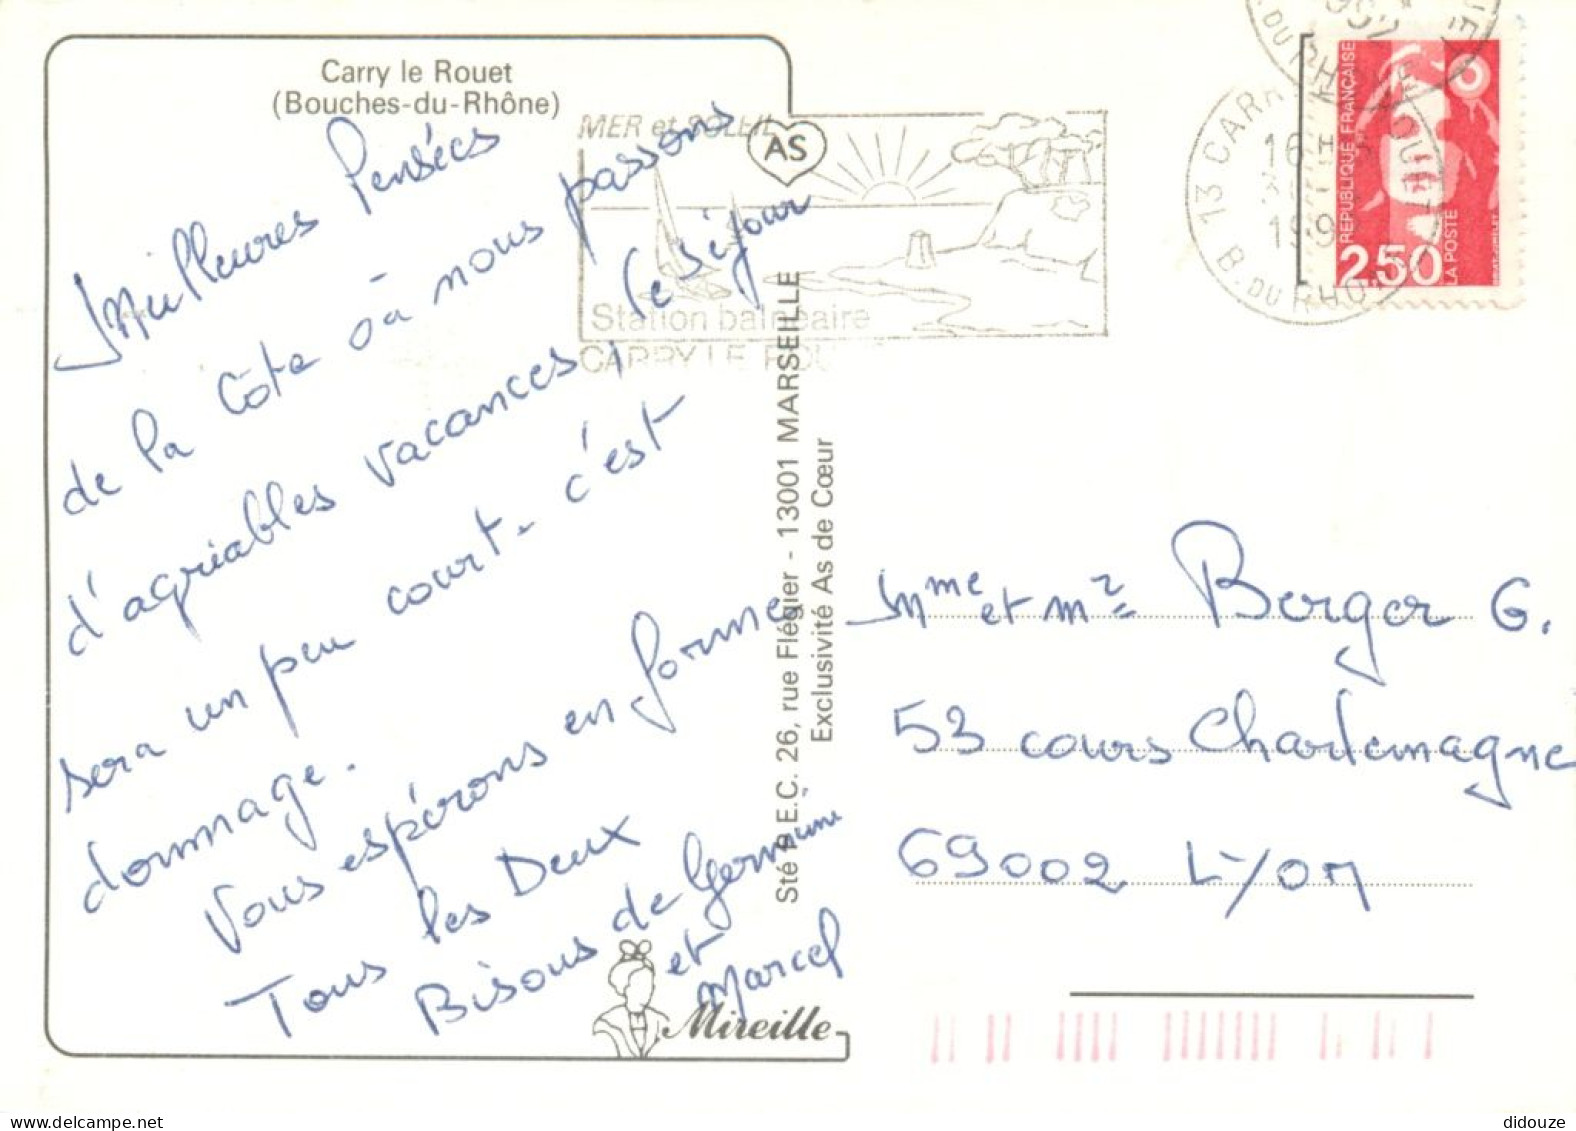 Carry le Rouet
(Bouches-du-Rhône)
Meilleures Pensées
de la Côte où nous passons
d'agréables vacances, le séjour
sera un peu court - c'est
dommage.
Vous espérons en forme
Tous les Deux
Bisous de Germaine
et
Marcel
Mireille
MER et SOLEIL
AS
Station balnéaire
CARRY LE ROU
Sté P.E.C. 26, rue Flégier - 13001 MARSEILLE
Exclusivité As de Cœur
13 CARR
16 H
199
B. DU RHO
REPUBLIQUE FRANÇAISE
2,50
LA POSTE
Mme et Mr Berger G.
53 cours Charlemagne
69002 Lyon
didouze